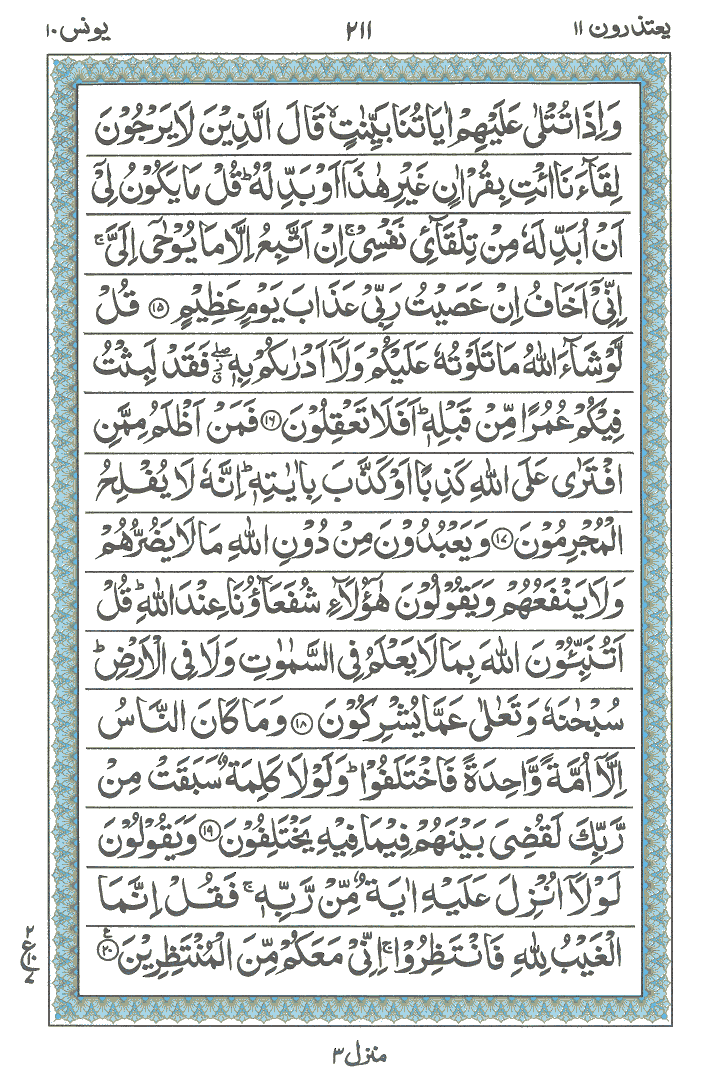 يعتذرون ١١
٢١١
يونس ١٠
وَاِذَا تُتْلٰى عَلَيْهِمْ اٰيَاتُنَا بَيِّنٰتٍ ۙ قَالَ الَّذِيْنَ لَا يَرْجُوْنَ
لِقَآءَنَا ائْتِ بِقُرْاٰنٍ غَيْرِ هٰذَآ اَوْ بَدِّلْهُ ؕ قُلْ مَا يَكُوْنُ لِيْٓ
اَنْ اُبَدِّلَهٗ مِنْ تِلْقَآئِ نَفْسِيْ ۚ اِنْ اَتَّبِعُ اِلَّا مَا يُوْحٰٓى اِلَيَّ ۚ
اِنِّيْٓ اَخَافُ اِنْ عَصَيْتُ رَبِّيْ عَذَابَ يَوْمٍ عَظِيْمٍ ۝١٥ قُلْ
لَّوْ شَآءَ اللّٰهُ مَا تَلَوْتُهٗ عَلَيْكُمْ وَلَآ اَدْرٰىكُمْ بِهٖ ۖ فَقَدْ لَبِثْتُ
فِيْكُمْ عُمُرًا مِّنْ قَبْلِهٖ ؕ اَفَلَا تَعْقِلُوْنَ ۝١٦ فَمَنْ اَظْلَمُ مِمَّنِ
افْتَرٰى عَلَى اللّٰهِ كَذِبًا اَوْ كَذَّبَ بِاٰيٰتِهٖ ؕ اِنَّهٗ لَا يُفْلِحُ
الْمُجْرِمُوْنَ ۝١٧ وَيَعْبُدُوْنَ مِنْ دُوْنِ اللّٰهِ مَا لَا يَضُرُّهُمْ
وَلَا يَنْفَعُهُمْ وَيَقُوْلُوْنَ هٰٓؤُلَآءِ شُفَعَآؤُنَا عِنْدَ اللّٰهِ ؕ قُلْ
اَتُنَبِّـُٔوْنَ اللّٰهَ بِمَا لَا يَعْلَمُ فِي السَّمٰوٰتِ وَلَا فِي الْاَرْضِ ؕ
سُبْحٰنَهٗ وَتَعٰلٰى عَمَّا يُشْرِكُوْنَ ۝١٨ وَمَا كَانَ النَّاسُ
اِلَّآ اُمَّةً وَّاحِدَةً فَاخْتَلَفُوْا ؕ وَلَوْلَا كَلِمَةٌ سَبَقَتْ مِنْ
رَّبِّكَ لَقُضِيَ بَيْنَهُمْ فِيْمَا فِيْهِ يَخْتَلِفُوْنَ ۝١٩ وَيَقُوْلُوْنَ
لَوْلَآ اُنْزِلَ عَلَيْهِ اٰيَةٌ مِّنْ رَّبِّهٖ ۚ فَقُلْ اِنَّمَا
الْغَيْبُ لِلّٰهِ فَانْتَظِرُوْا ۚ اِنِّيْ مَعَكُمْ مِّنَ الْمُنْتَظِرِيْنَ ۝٢٠ ع
٢
ع١٠
٧
منزل ٣